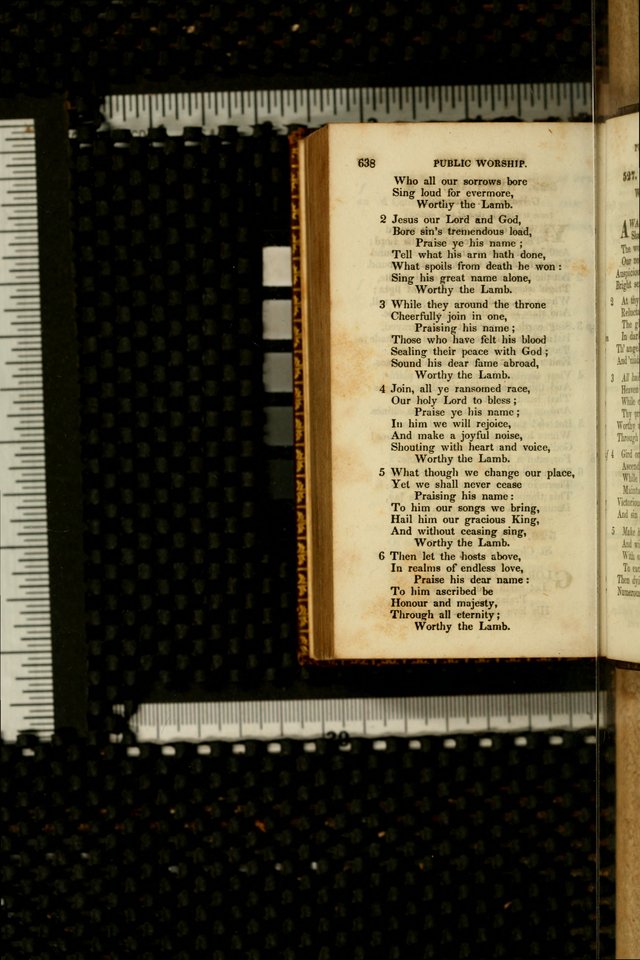 638 PUBLIC WORSHIP.
Who all our sorrows bore
Sing loud for evermore,
Worthy the Lamb.
2 Jesus our Lord and God,
Bore sin's tremendous load,
Praise ye his name ;
Tell what his arm hath done,
What spoils from death he won :
Sing his great name alone,
Worthy the Lamb.
3 While they around the throne
Cheerfully join in one,
Praising his name ;
Those who have felt his blood
Sealing their peace with God ;
Sound his dear fame abroad,
Worthy the Lamb.
4 Join, all ye ransomed race,
Our holy Lord to bless ;
Praise ye his name ;
In him we will rejoice,
And make a joyful noise,
Shouting with heart and voice,
Worthy the Lamb.
5 What though we change our place,
Yet we shall never cease
Praising his name :
To him our songs we bring,
Hail him our gracious King,
And without ceasing sing,
Worthy the Lamb.
6 Then let the hosts above,
In realms of endless love,
Praise his dear name :
To him ascribed be
Honour and majesty,
Through all eternity ;
Worthy the Lamb.
527.
The
Our
Bright
2 At thy
The
In
Th' angel
And
3 All hail
Heaven
While
Thy
Worthy
Through
4 Gird on
Ascend
While
And sin
5 Make
And
With
To
Then